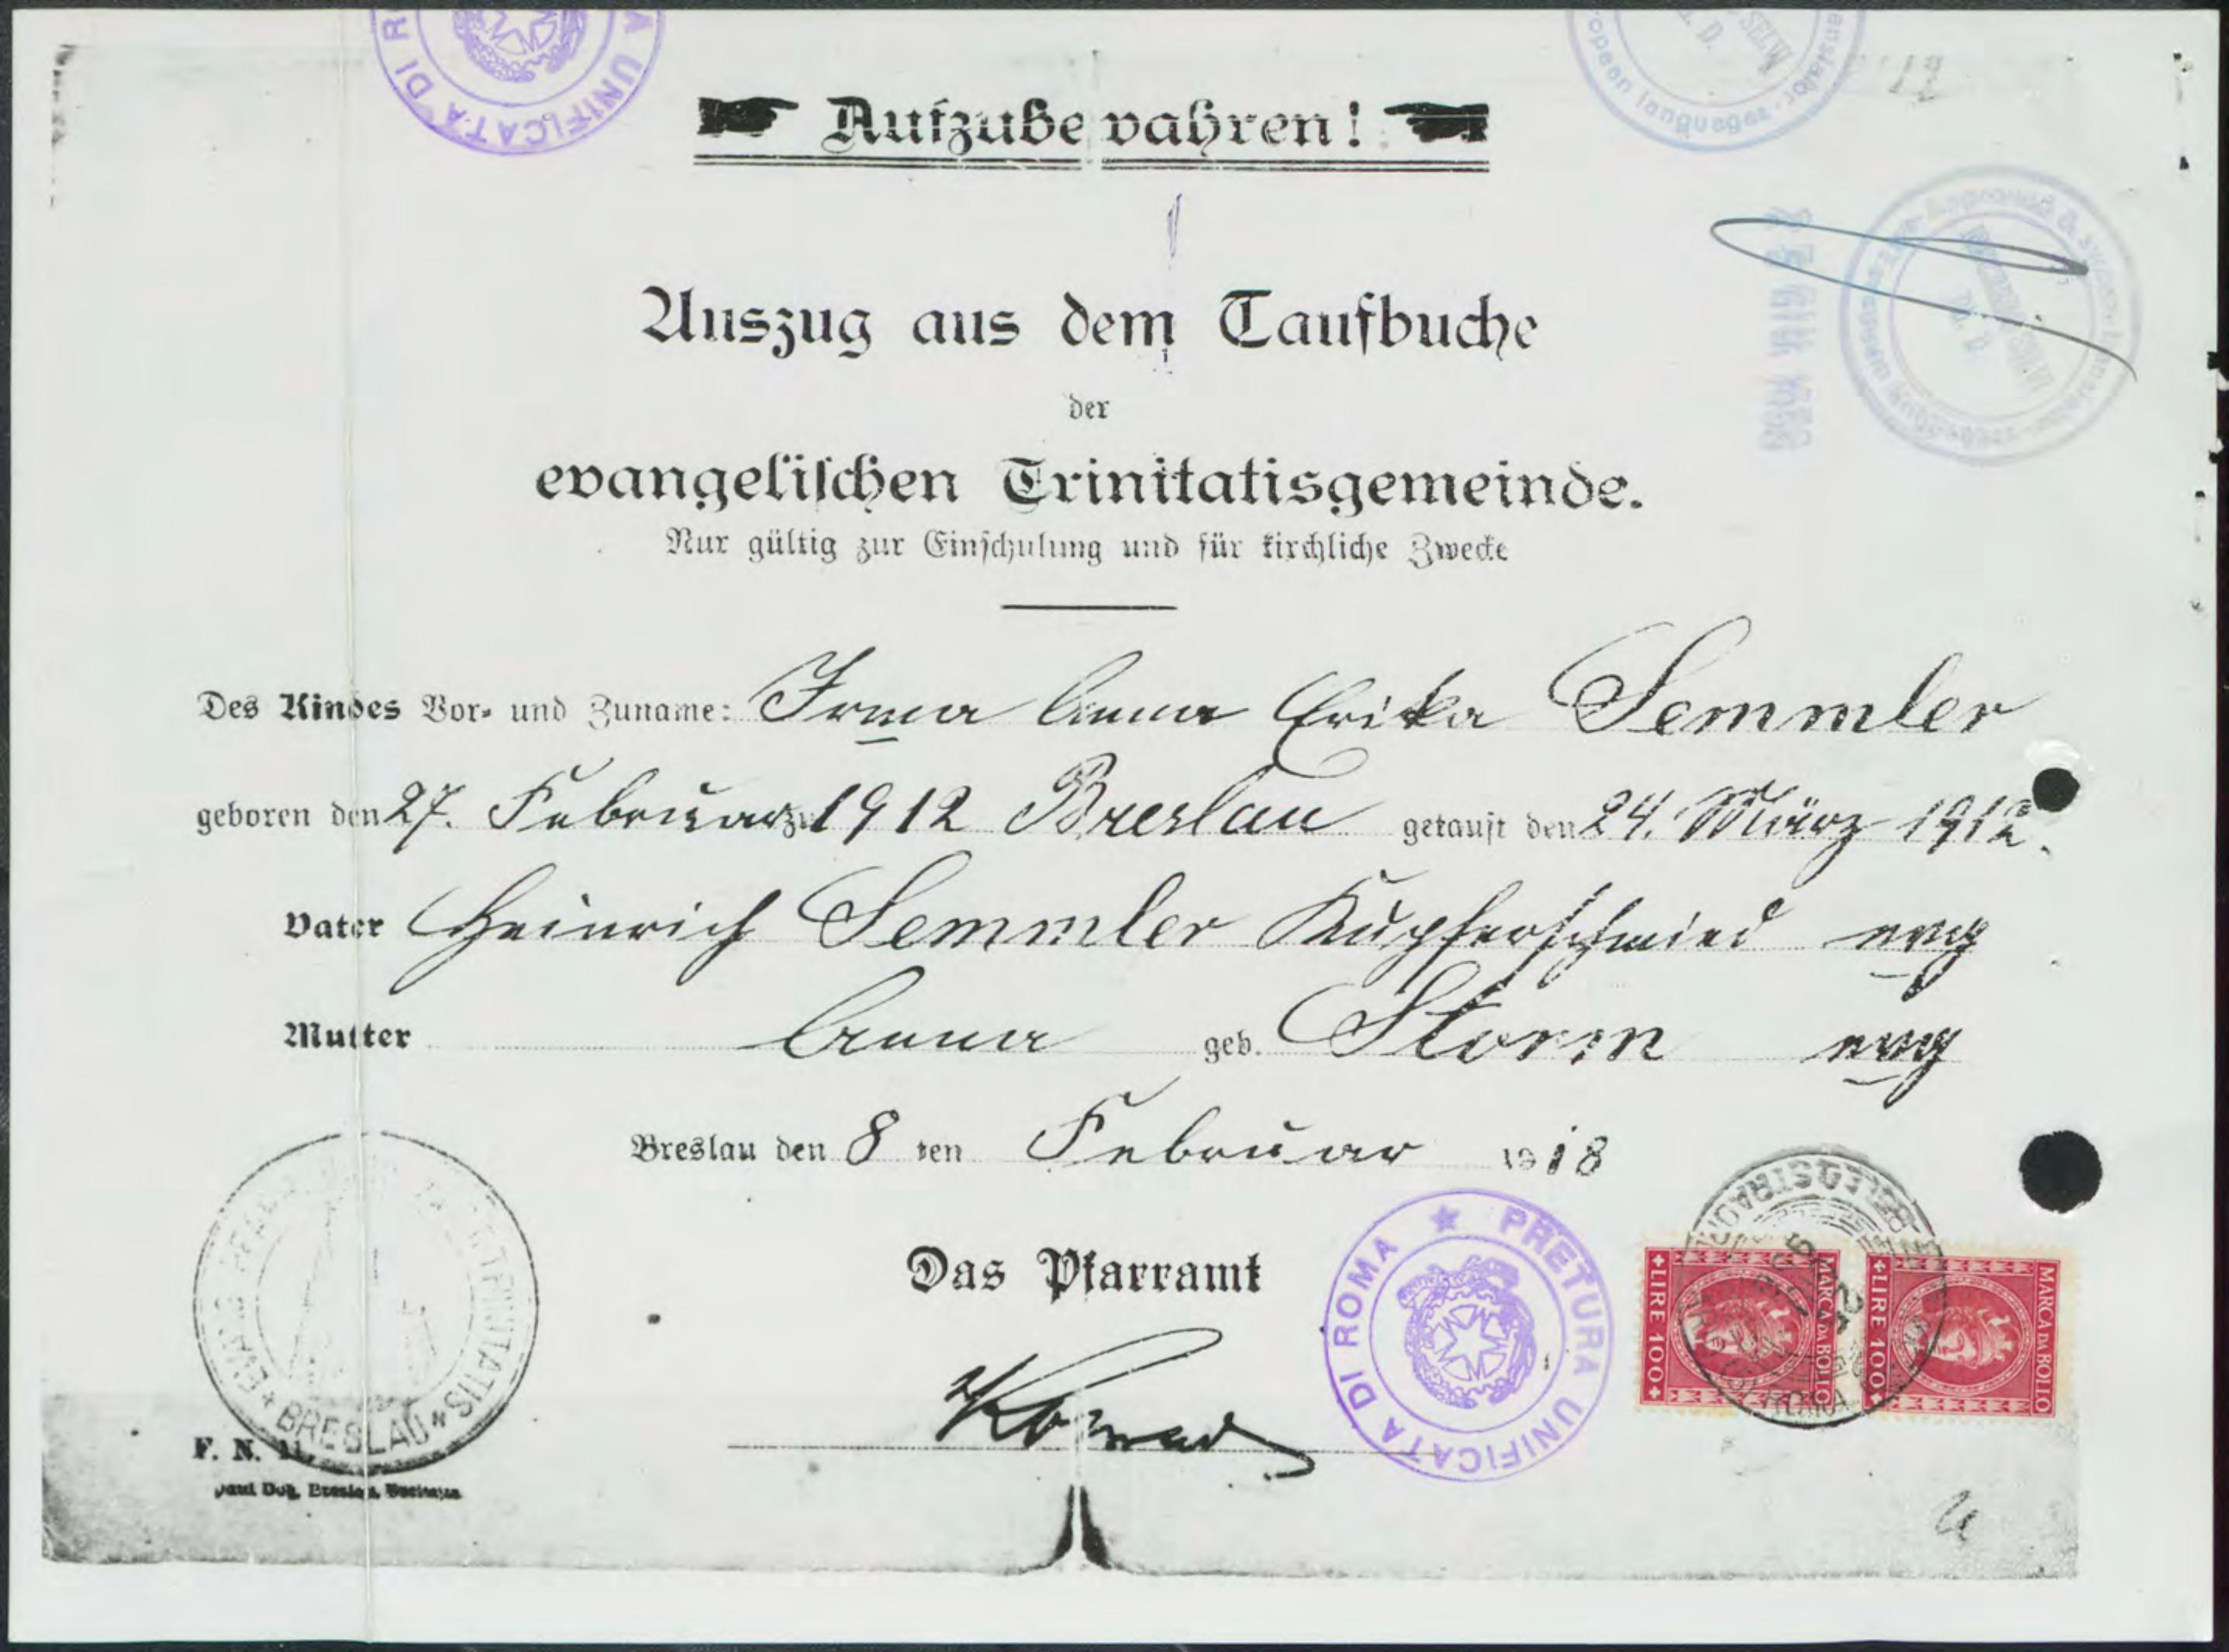 Aufzubewahren!
Auszug aus dem Taufbuche
der
evangelischen Trinitatisgemeinde.
Nur gültig zur Einschulung und für kirchliche Zwecke
Des Kindes Vor- und Zuname: Irma Anna Erika Semmler
geboren den 27. Februar zu 1912 Breslau getauft den 24. März 1912.
Vater Heinrich Semmler Kupferschmied evg
Mutter Anna geb. Storm evg
Breslau den 8 ten Februar 1918
Das Pfarramt
PRETURA UNIFICATA DI ROMA
MARCA DA BOLLO LIRE 100
MARCA DA BOLLO LIRE 100
TRINITATIS
BRESLAU
F. N.
A UNIFICATA DI R
languages